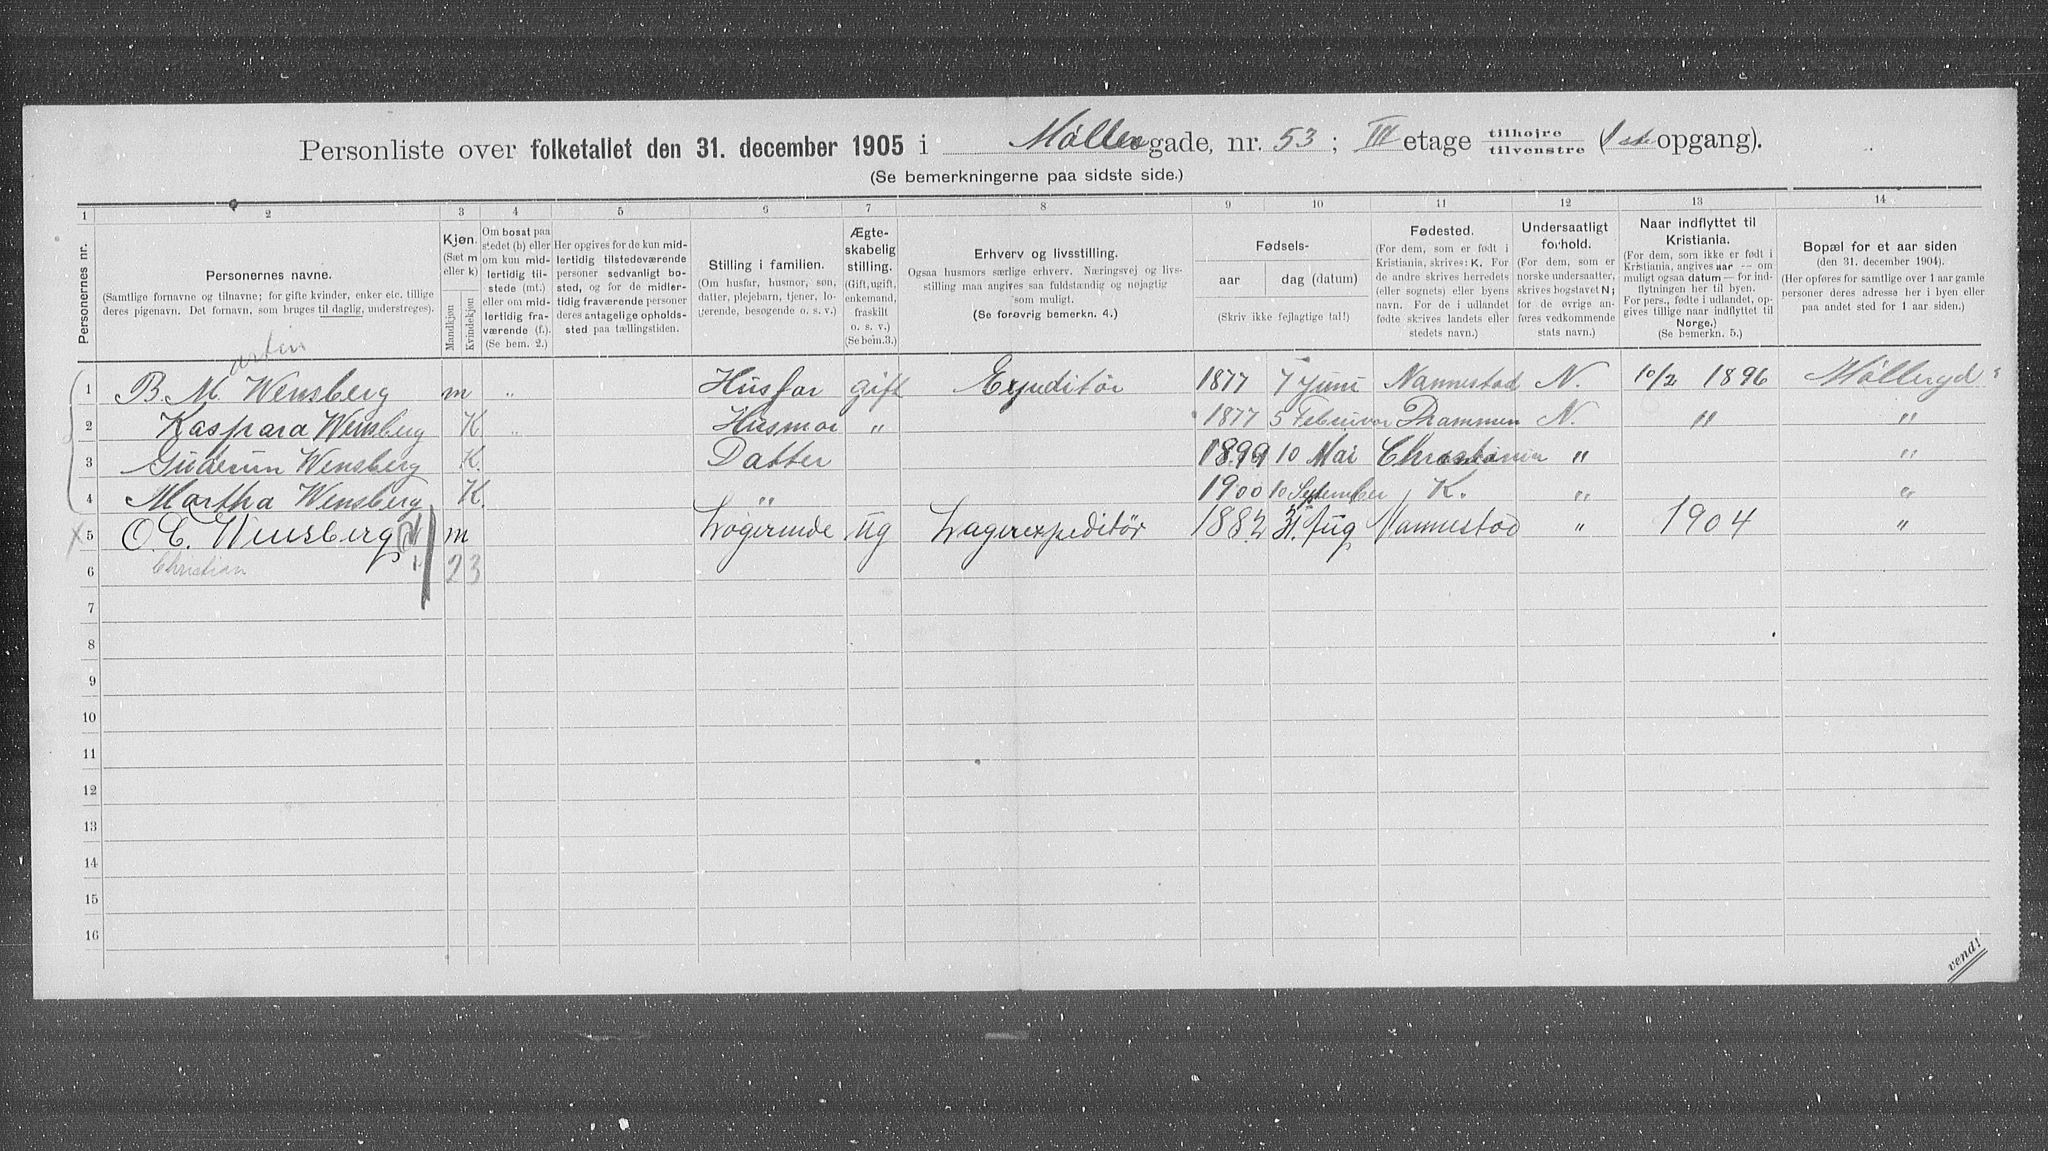 Personliste over folketallet den 31. december 1905 i Møllergade, nr. 53; III etage tilhøjre tilvenstre (1ste opgang).
(Se bemerkningerne paa sidste side.)
1 2 3 4 5 6 7 8 9 10 11 12 13 14
Personernes nr.
Personernes navne.
(Samtlige fornavne og tilnavne; for gifte kvinder, enker etc. tillige deres pigenavn. Det fornavn, som bruges til daglig, understreges).
Kjøn.
(Sæt m eller k)
Mandkjøn
Kvindekjøn
Om bosat paa stedet (b) eller om kun midlertidig tilstede (mt.) eller om midlertidig fraværende (f.).
(Se bem. 2.)
Her opgives for de kun midlertidig tilstedeværende personer sedvanligt bosted, og for de midlertidig fraværende personer deres antagelige opholdssted paa tællingstiden.
Stilling i familien.
(Om husfar, husmor, søn, datter, plejebarn, tjener, logerende, besøgende o. s. v.)
Ægteskabelig stilling.
(Gift, ugift, enkemand, fraskilt o. s. v.)
(Se bem.3.)
Erhverv og livsstilling.
Ogsaa husmors særlige erhverv. Næringsvej og livsstilling maa angives saa fuldstændig og nøjagtig som muligt.
(Se forøvrig bemerkn. 4.)
Fødsels-
aar
dag (datum)
(Skriv ikke fejlagtige tal!)
Fødested.
(For dem, som er født i Kristiania, skrives: K. For de andre skrives herredets (eller sognets) eller byens navn. For de i udlandet fødte skrives landets eller stedets navn.)
Undersaatligt forhold.
(For dem, som er norske undersaatter, skrives bogstavet N; for de øvrige anføres vedkommende stats navn.)
Naar indflyttet til Kristiania.
(For dem, som ikke er født i Kristiania, angives aar — om muligt ogsaa datum — for indflytningen her til byen. For pers., fødte i udlandet, opgives tillige naar indflyttet til Norge.)
(Se bemerkn. 5.)
Bopæl for et aar siden
(den 31. december 1904).
(Her opføres for samtlige over 1 aar gamle personer deres adresse her i byen eller paa andet sted for 1 aar siden.)
artin
1 B. M. Wensberg m " Husfar gift Expeditør 1877 7 Juni Nannestad N. 10/2 1896 Møllergd
2 Kaspara Wensberg K " Husmor " 1877 5 Februar Drammen N. " "
3 Guderun Wensberg K. Datter 1899 10 Mai Christiania " "
4 Martha Wensberg K. " 1900 10 September K. " "
X 5 O. C. Wensberg m Logerende ug Lagerexpeditør 1882 31. Aug Nannestad " 1904 "
6 Christian 2 3
7
8
9
10
11
12
13
14
15
16
vend!